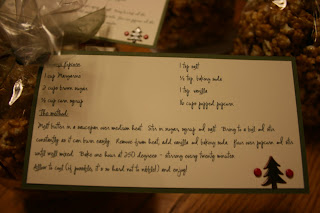 1 tsp salt
1 cup Margarine
½ tsp baking soda
2 cups brown sugar
1 tsp vanilla
½ cup corn syrup
16 cups popped popcorn
The method:
Melt butter in a saucepan over medium heat. Stir in sugar, syrup and salt. Bring to a boil and stir
constantly as it can burn easily. Remove from heat, add vanilla and baking soda. Pour over popcorn and stir
until well mixed. Bake one hour at 250 degrees - stirring every twenty minutes.
Allow to cool (if possible, it's so hard not to nibble!) and enjoy!